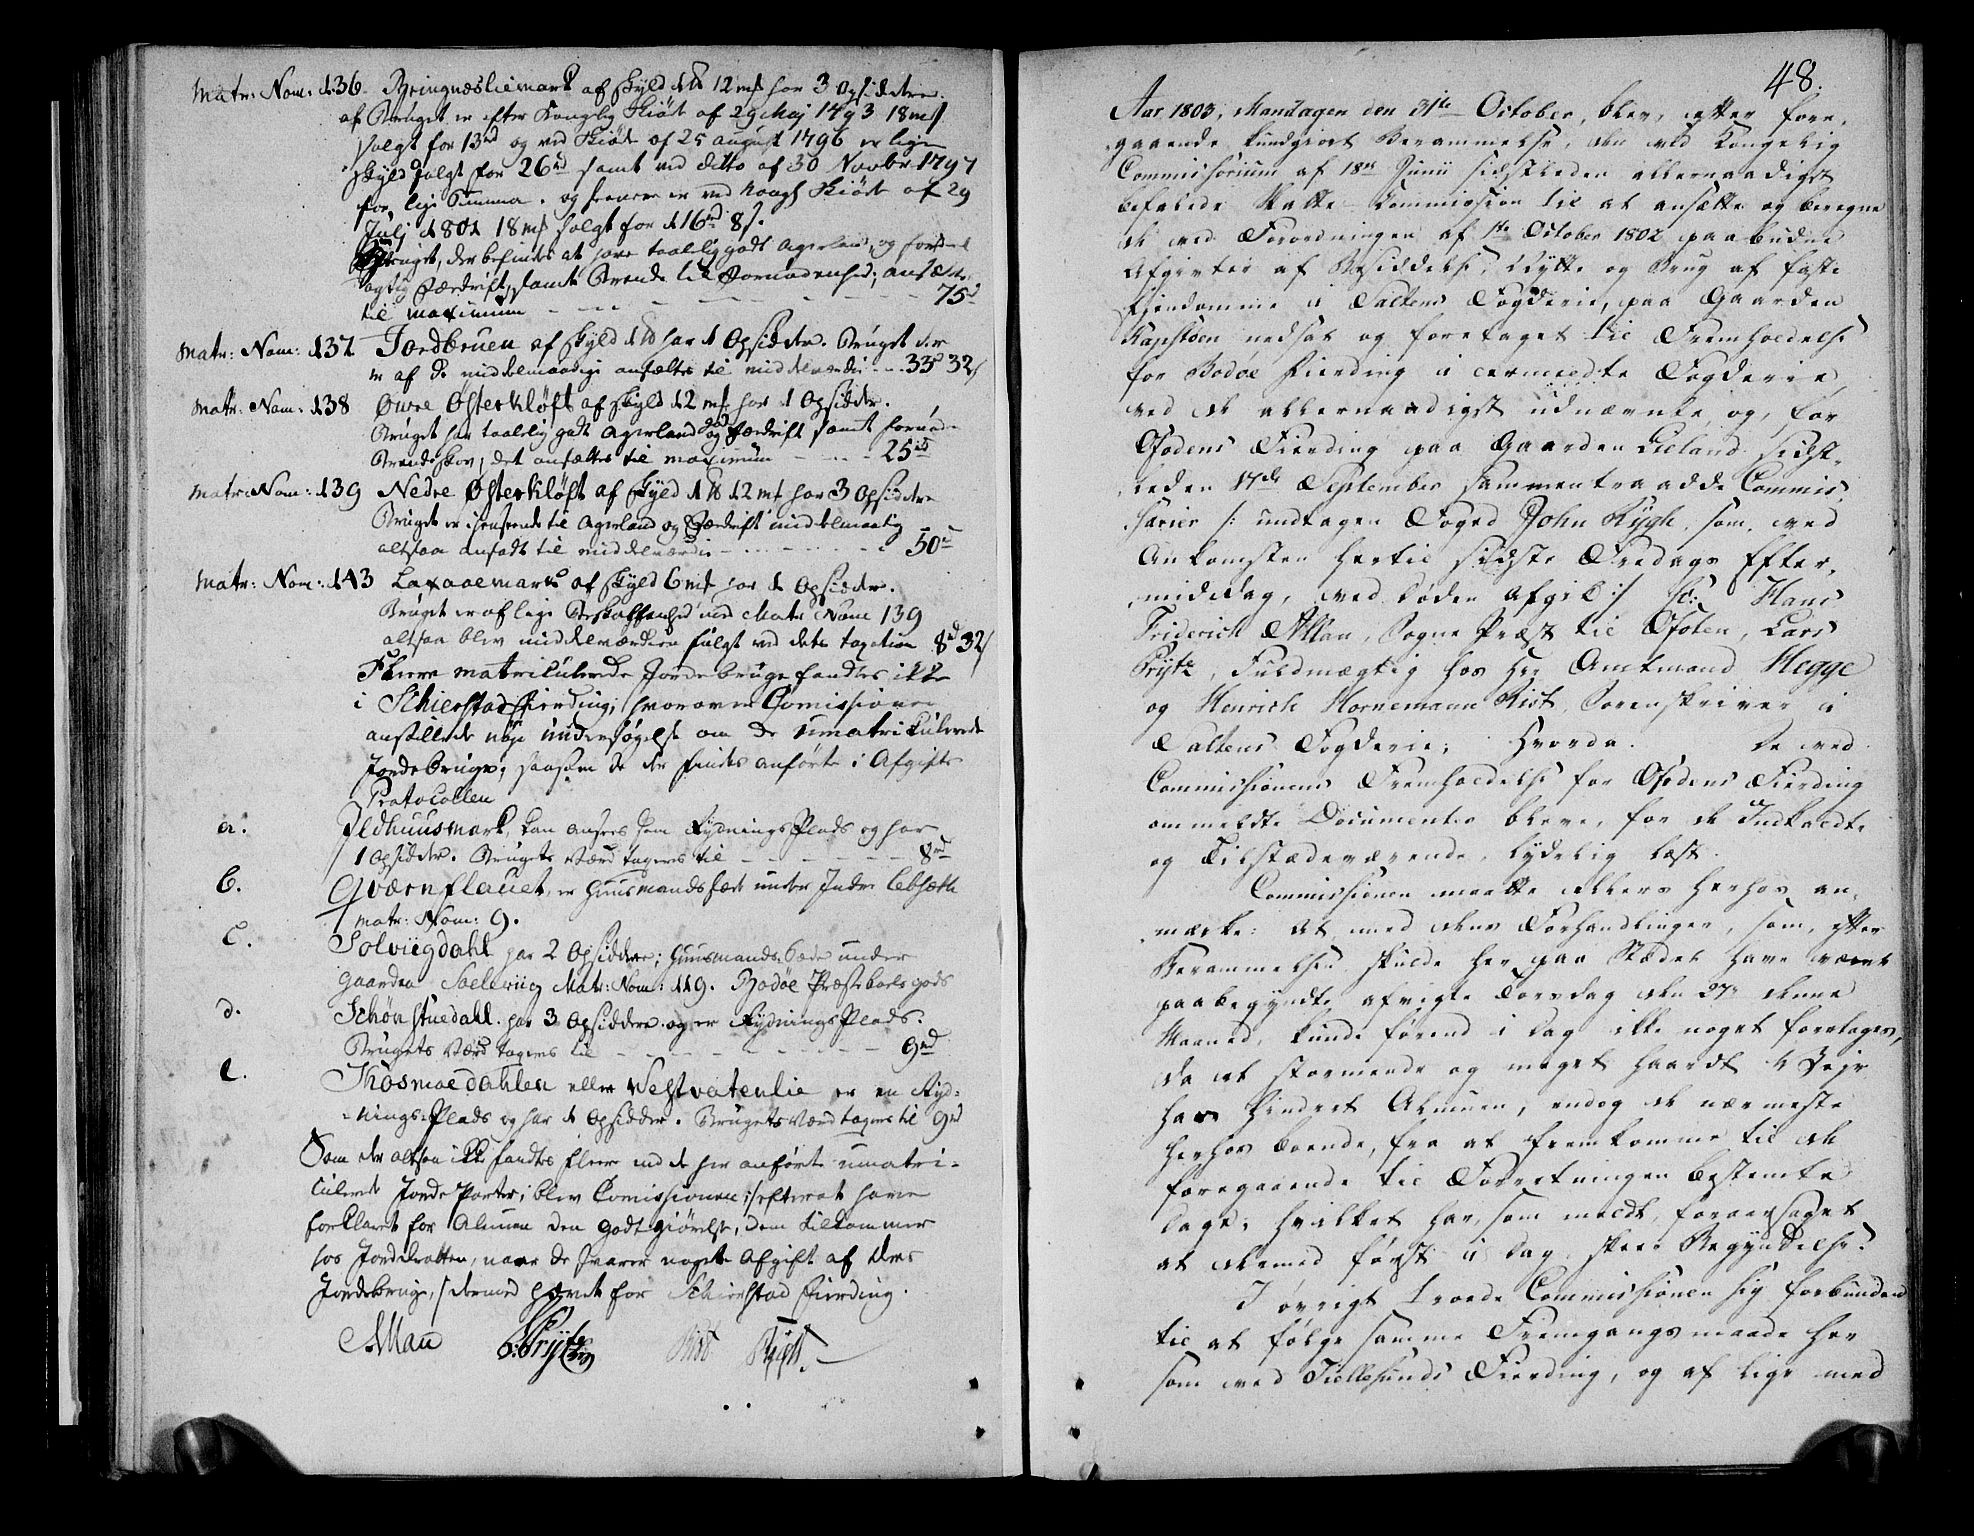 Matr: Nom: 136. Bringnæsliemark af Skyld 1 12 mk har 3 Opsiddere.
af Bruget er efter Kongelig Skiøde af 29 Maj 1793 18 mk
solgt for 13rd og ved Skiøde af 25 august 1796 er lige
Skyld solgt for 26rd samt ved ditto af 30 Novbr 1797
for lige Summa. og er ved Skiøde af 29
Julj 1801 18 mk solgt for 116rd 8s.
Bruget, der befindes at have taalelig godt Agerland og
Fædrift, samt Brende til Fornødenhed; ansættes
til maximum - - - 75d
Matr: Nom: 137 Jordbruen af Skyld 1 har 1 Opsidder. Bruget der
er af de middelmaadige ansættes til middelværdie - - 33d 32s
Matr: Nom: 138 Øvre Østerkløft af Skyld 12 mk har 1 Opsidder.
Bruget har taalelig godt Agerland og god Fædrift samt fornøden
Brendeskov, det ansættes til maximum - - - 25rd
Matr: Nom: 139 Nedre Østerkløft af Skyld 1 12 mk har 3 Opsiddere
Bruget er i henseende til Agerland og Fædrift middelmaatig
altsaa ansadt til middelværdie - - - 50rd
Matr: Nom: 143 Laxaaemark af Skyld 6 mk har 1 Opsidder.
Bruget er af lige Beskaffenhed med Matr Nom 139
altsaa blev middelværdien fulgt ved dets taxation 8d 32s
Flere matriculerede Jordebruge fandtes ikke
i Schierstad Fierding; hvorover Comissionen
anstillede nøje undersøgelse om de umatrikulerede
Jordebruge, saasom de der findes anførte i Afgifts
Protocollen
a. Ildhuusmark, kan ansees som Rydnings Plads og har
1 Opsidder. Brugets Værd tages til - - - 8rd
b. Qværnflauet, er Huusmandssæde under Indre Løbsætte
matr: Nom: 9.
c. Solviigdahl har 2 Opsiddere; Huusmands Sæde under
Gaarden Soelviig Matr: Nom: 119. Bodøe Præstebords gods
d. Schønstuedahl. har 3 Opsiddere. og er Rydnings Plads.
Brugets Værd tages til - - - 9rd
e. Thosmoedahlen eller Vestvatenlie er en Ryd-
nings Plads og har 1 Opsidder. Brugets Værd tages til 9rd
Som der altsaa ikke fandtes flere end de her anførte umatri-
culerede Jorde Parter; blev Comissionen; efterat have
forklaret for Almuen den godtgiørelse, dem tilkommer
hos Jorddrotten, naar de svarer nogen Afgift af deres
Jordebruge, / dermed hævet for Schierstad Fierding.
AMan LPryte Rist
48.
Aar 1803, Mandagen den 31te October, blev, efter fore-
gaaende kundgiort Berammelse, den ved Kongelig
Commissorium af 18de Junii sidstleden allernaadigst
befalede Skatte Commission til at ansætte og beregne
de ved Forordningen af 1ste October 1802 paabudne
Afgivter af Besiddelse, Nytte og Brug af faste
Eiendomme i Saltens Fogderie, paa Gaarden
Kapstøen nedsat og foretaget til Fremholdelse
for Bodøe Fierding i ermeldte Fogderie,
ved de allernaadigst udnævnte, og, for
Ofodens Fierding paa Gaarden Lieland sidst-
leden 17de September sammentraadde Commis-
sarier /: undtagen Foged John Rygh, som, ved
Ankomsten hertil sidste Fredags Efter-
middag, ved Døden afgik :/ Sc: Hans
Friderich Allan, Sogne Præst til Ofoten, Lars
Pryte, Fuldmægtig hos Hr Amtmand Hegge
og Henrich Hornemann Rist, Sorenskriver i
Saltens Fogderie; hvorda. De ved
Commissionens Fremholdelse for Ofodens Fierding
ommeldte Documenter bleve, for de Indkaldte
og Tilstædeværende, lydelig læst.
Commissionen maatte ellers herhos an-
mærke: At med dens Forhandlinger, som, efter
Berammelsen skulde her paa Stædet have været
paabegyndte afvigte Torsdag den 27de denne
Maaned, kunde førend i dag ikke noget foretages,
da et stormende og meget haardt Vejr
har hindret Almuen, endog de nærmeste
herhos boende, fra at fremkomme til de
foregaaende til Forretningen bestemte
Dage; hvilket har, som meldt, foraarsaget
at dermed først i dag skeer Begyndelse.
I øvrigt troede Commissionen sig forbunden
til at følge samme Fremgangsmaade her
som ved Tiellesunds Fierding, og af lige med